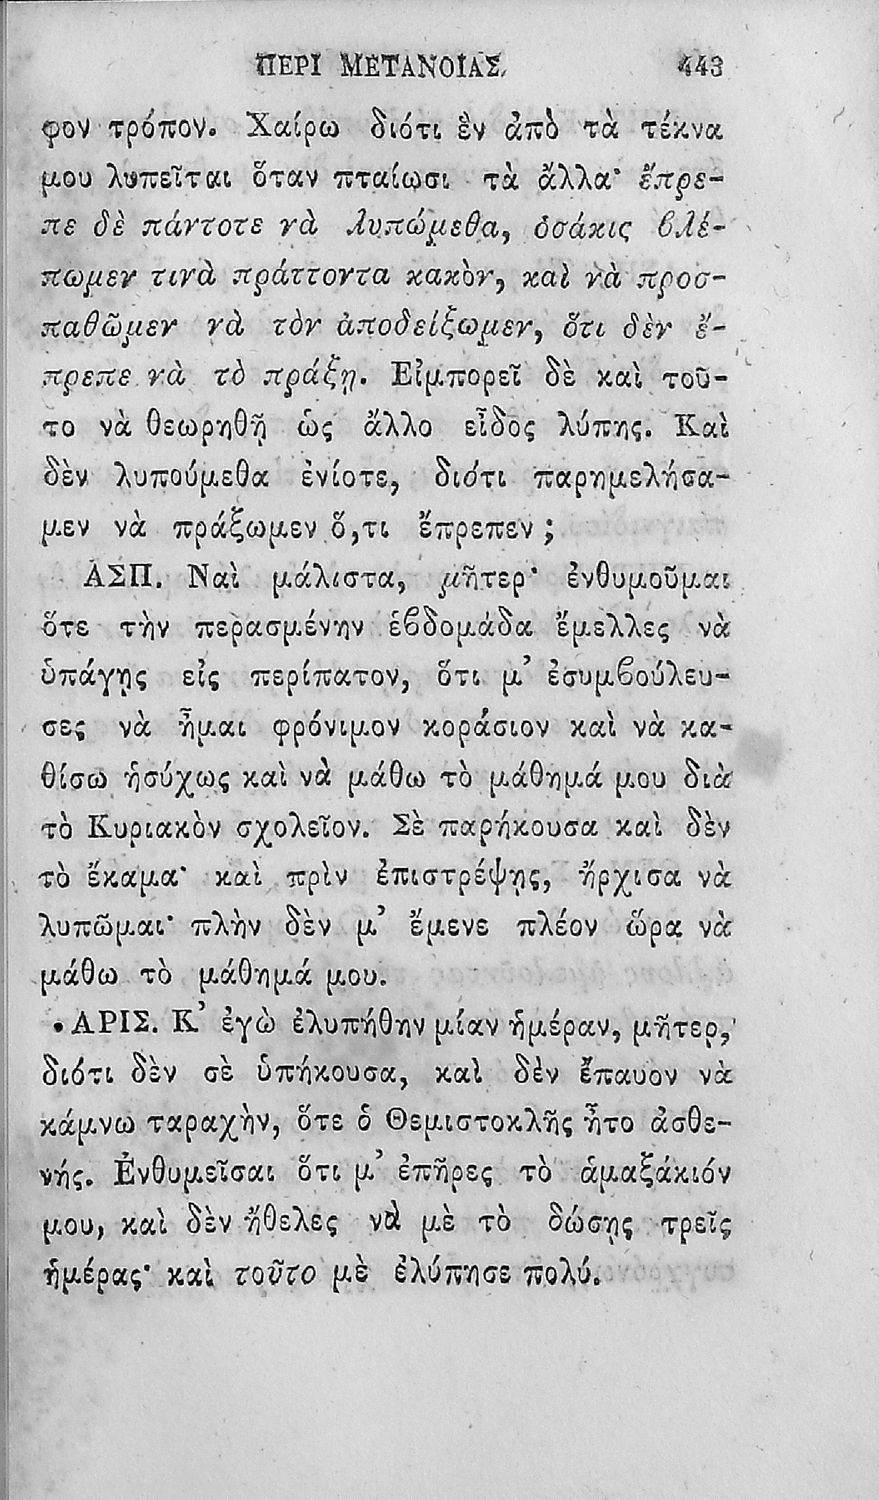 ΠΕΡΙ ΜΕΤΑΝΟΙΑΣ. 443
φον τρόπον. Χαίρω διότι ἓν ἀπὸ τὰ τέκνα
μου λυπεῖται ὅταν πταίωσι τὰ ἄλλα· ἔπρε-
πε δὲ πάντοτε νὰ λυπώμεθα, ὁσάκις βλέ-
πωμεν τινὰ πράττοντα κακὸν, καὶ νὰ προσ-
παθῶμεν νὰ τὸν ἀποδείξωμεν, ὅτι δὲν ἔ-
πρεπε νὰ τὸ πράξῃ. Εἰμπορεῖ δὲ καὶ τοῦ-
το νὰ θεωρηθῇ ὡς ἄλλο εἶδος λύπης. Καὶ
δὲν λυπούμεθα ἐνίοτε, διότι παρημελήσα-
μεν νὰ πράξωμεν ὅ,τι ἔπρεπεν ;
ΑΣΠ. Ναὶ μάλιστα, μῆτερ· ἐνθυμοῦμαι
ὅτε τὴν περασμένην ἑβδομάδα ἔμελλες νὰ
ὑπάγῃς εἰς περίπατον, ὅτι μ᾽ ἐσυμβούλευ-
σες νὰ ἦμαι φρόνιμον κοράσιον καὶ νὰ κα-
θίσω ἡσύχως καὶ νὰ μάθω τὸ μάθημά μου διὰ
τὸ Κυριακὸν σχολεῖον. Σὲ παρήκουσα καὶ δὲν
τὸ ἔκαμα· καὶ πρὶν ἐπιστρέψῃς, ἤρχισα νὰ
λυπῶμαι· πλὴν δὲν μ᾽ ἔμενε πλέον ὥρα νὰ
μάθω τὸ μάθημά μου.
ΑΡΙΣ. Κ᾽ ἐγὼ ἐλυπήθην μίαν ἡμέραν, μῆτερ,
διότι δὲν σὲ ὑπήκουσα, καὶ δὲν ἔπαυον νὰ
κάμνω ταραχὴν, ὅτε ὁ Θεμιστοκλῆς ἦτο ἀσθε-
νής. Ἐνθυμεῖσαι ὅτι μ᾽ ἐπῆρες τὸ ἁμαξάκιόν
μου, καὶ δὲν ἤθελες νὰ μὲ τὸ δώσῃς τρεῖς
ἡμέρας· καὶ τοῦτο μὲ ἐλύπησε πολύ.